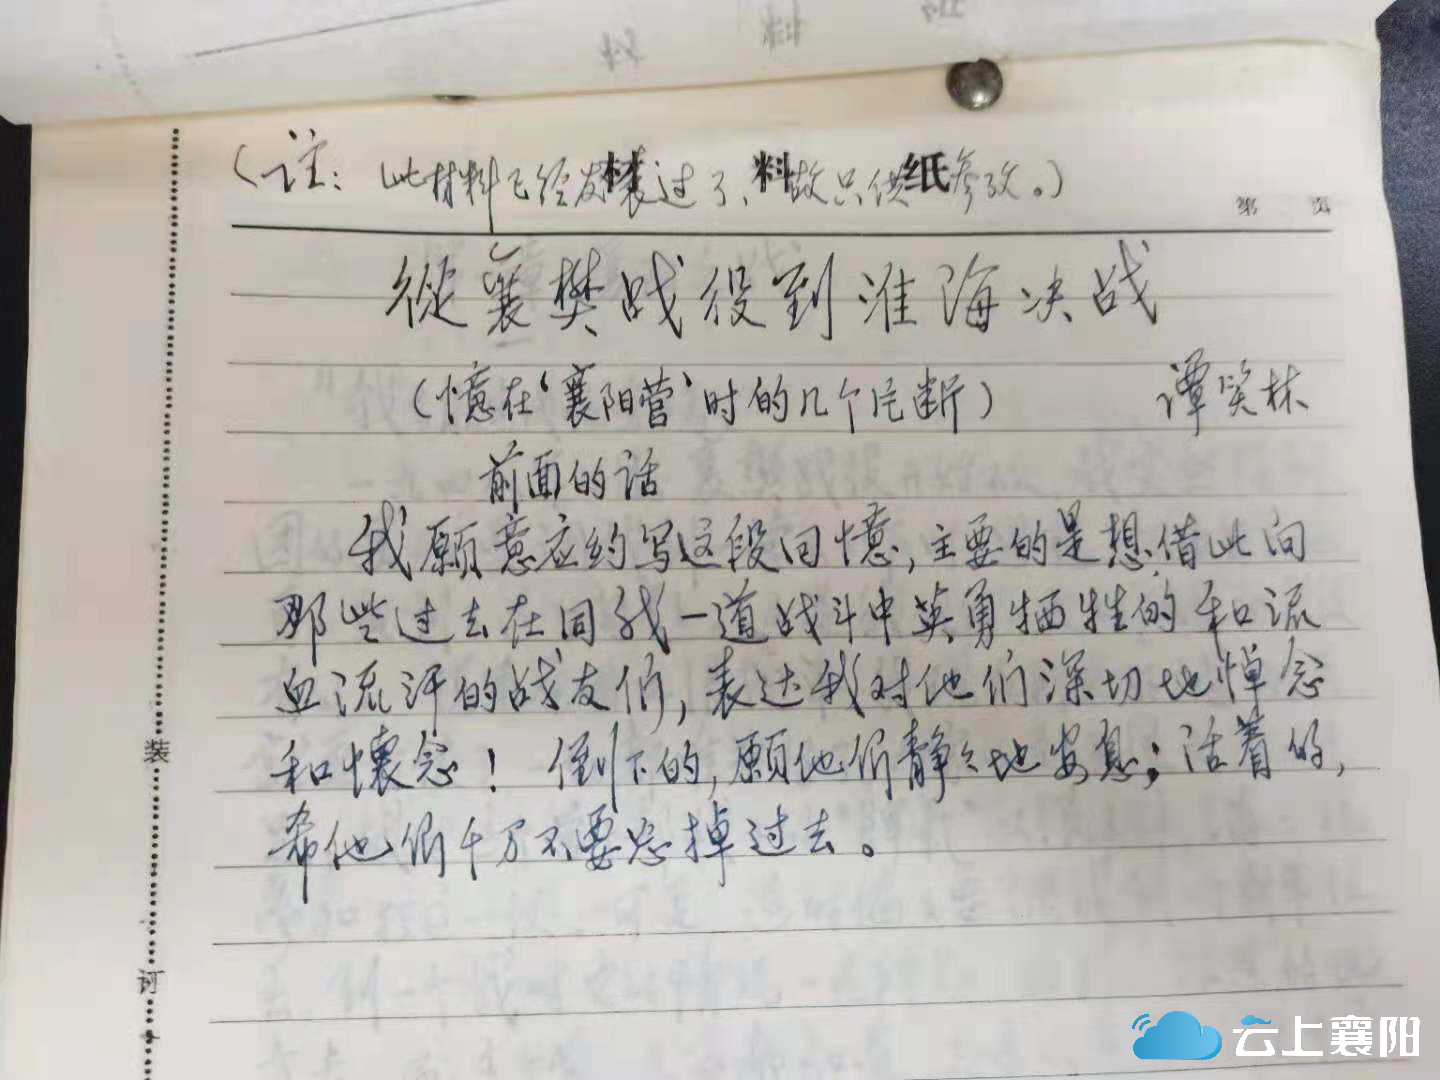 材料纸
(註：此材料已经发表过了、故只供参攷。)
第 页
從襄樊战役到淮海决战
(憶在‘襄阳营’时的几个片断) 谭笑林
前面的话
我願意应约写这段回憶，主要的是想借此向
那些过去在同我一道战斗中英勇牺牲的和流
血流汗的战友们，表达我对他们深切地悼念
和懷念！倒下的，願他们静々地安息；活着的，
希他们千万不要忘掉过去。
装
订
云上襄阳